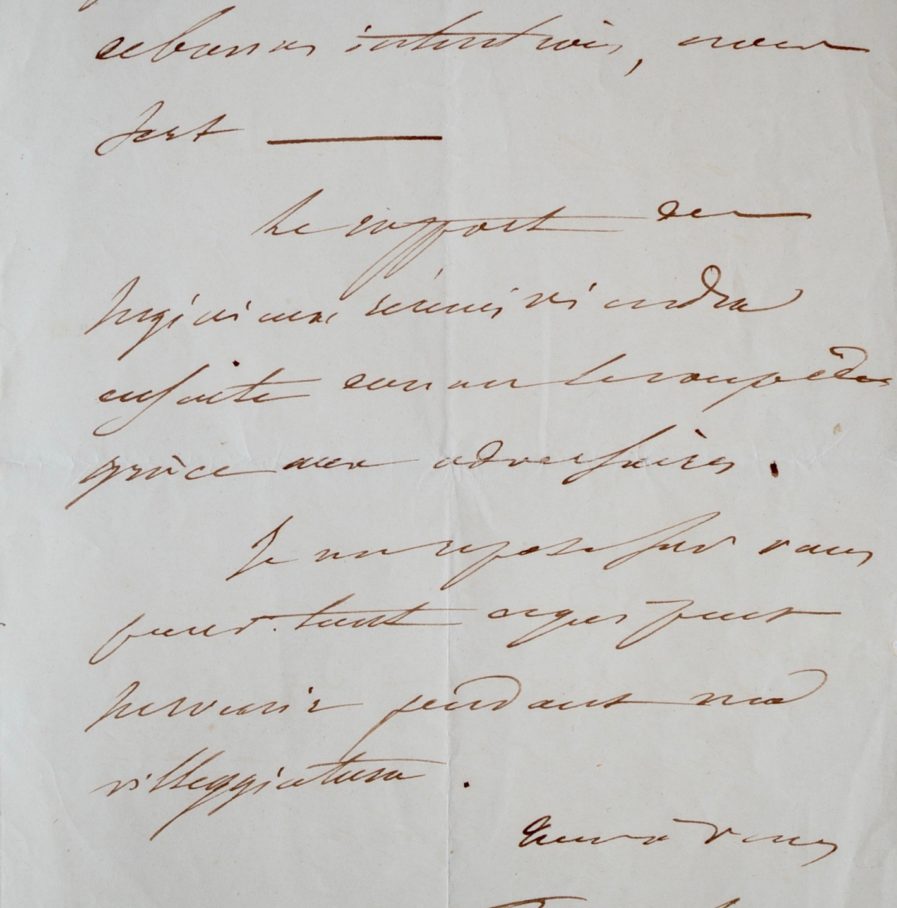 de bonnes intentions, nous
sert —
Le rapport des
Ingénieurs réunis viendra
ensuite donner le coup de
grâce aux adversaires.
Je me repose sur vous
pour tout ce qui peut
survenir pendant ma
villeggiatura.
Tout à vous